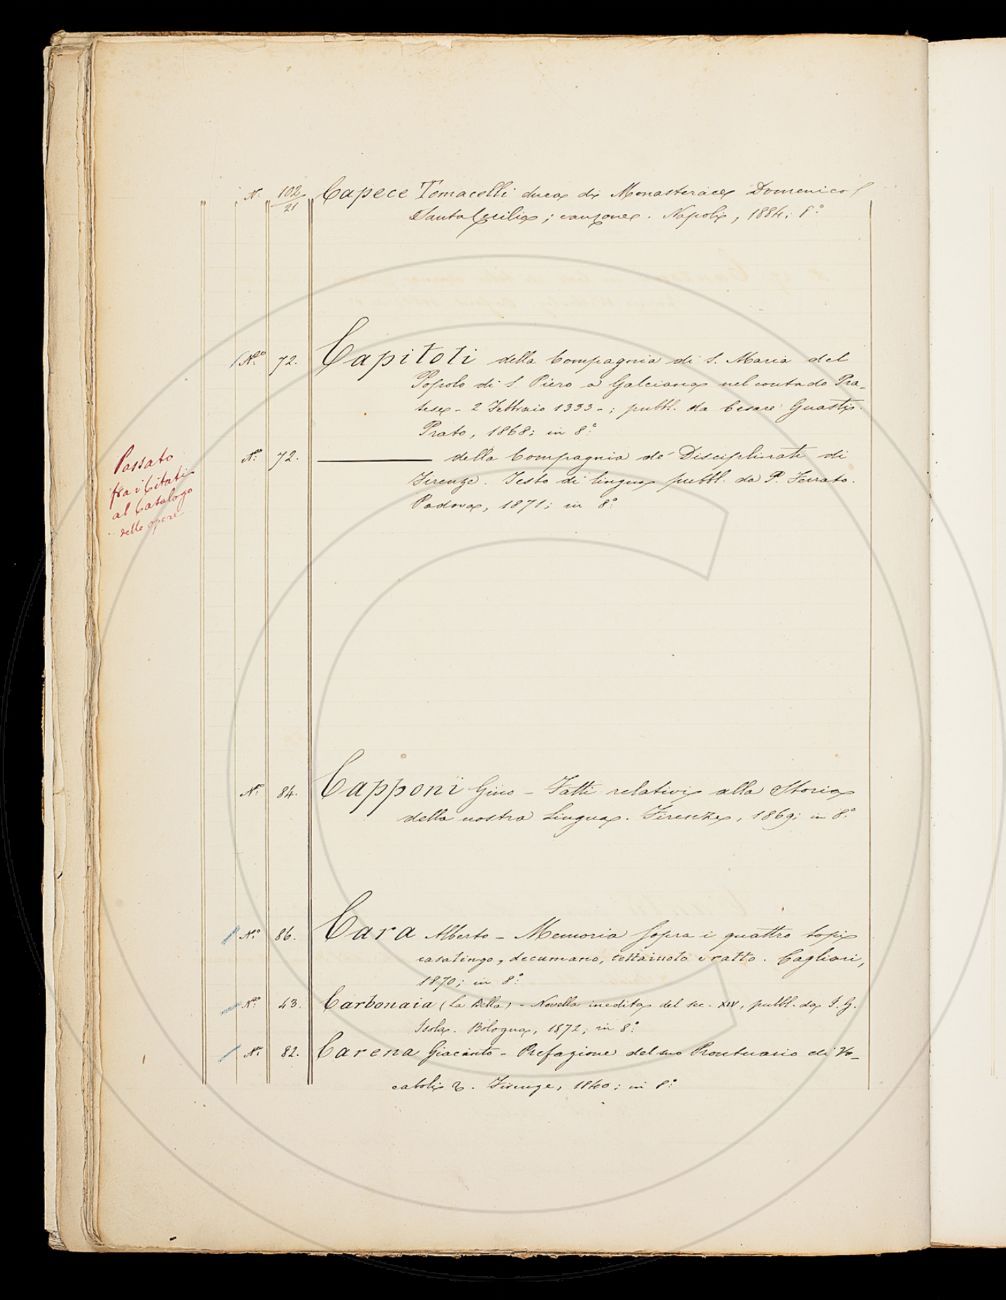 N. 102/21 Capece Tomacelli duca di Monasterace Domenico
Santa Cecilia; canzone. Napoli, 1884; 8.°
N.° 72. Capitoli della Compagnia di S. Maria del
Popolo di S. Piero a Galciana nel contado Pra-
tese - 2 Febbraio 1333 -; pubbl. da Cesare Guasti.
Prato, 1868; in 8.°
Passato
fra i Citati
al Catalogo
delle opere
N.° 72. ——— della Compagnia de' Disciplinati di
Firenze. Testo di lingua pubbl. da P. Ferrato.
Padova, 1871; in 8.°
N.° 84. Capponi Gino - Fatti relativi alla Storia
della nostra Lingua. Firenze, 1869; in 8.°
N.° 86. Cara Alberto - Memoria sopra i quattro topi
casalingo, decumano, tettaiuolo e ratto. Cagliari,
1870; in 8.°
N.° 43. Carbonaia (La Bella) - Novella inedita del sec. XIV, pubbl. da I. G.
Isola. Bologna, 1872; in 8.°
N.° 82. Carena Giacinto - Prefazione del suo Prontuario di Vo-
caboli. Firenze, 1840; in 8.°